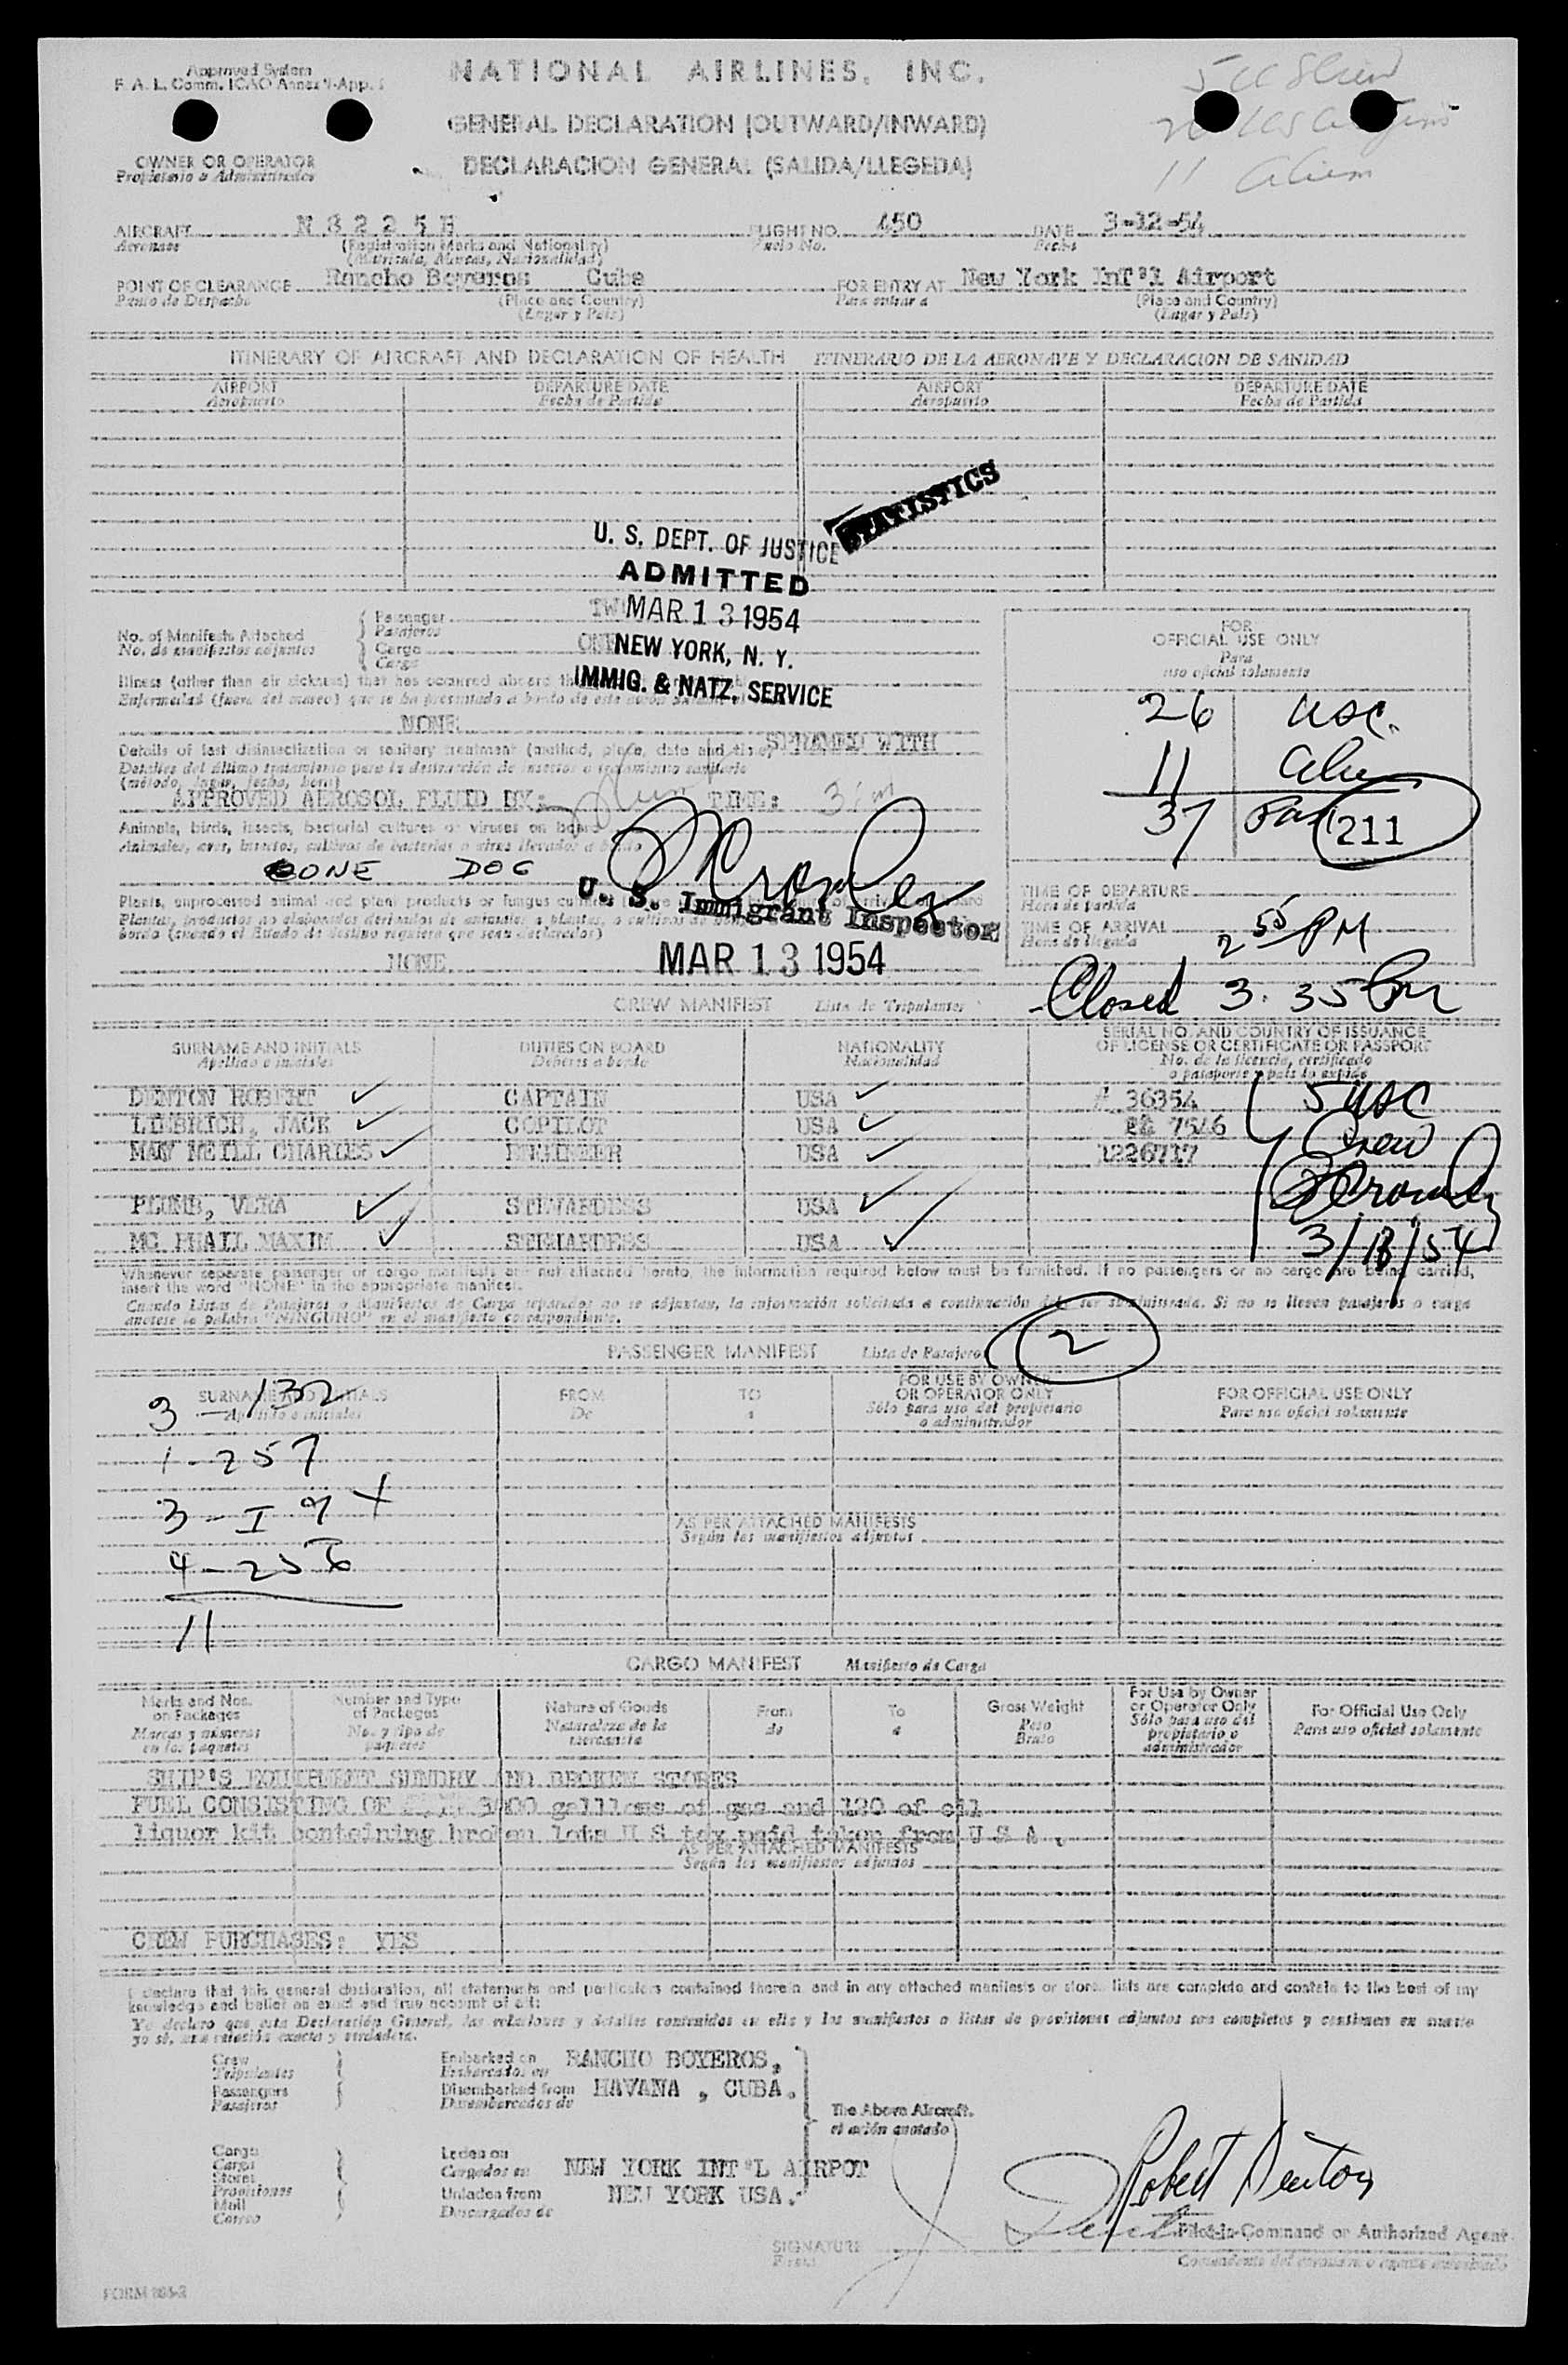 Approved System
F. A. L. Comm. ICAO Annex 9-App.
NATIONAL AIRLINES, INC.
GENERAL DECLARATION (OUTWARD/INWARD)
DECLARACION GENERAL (SALIDA/LLEGEDA)
OWNER OR OPERATOR
Propietario o Administrador
11 alien
AIRCRAFT N 8 2 2 5 H FLIGHT NO. 450 DATE 3-12-54
Aeronave (Registration Marks and Nationality) Vuelo No. Fecha
(Matricula, Marcas, Nacionalidad)
POINT OF CLEARANCE Rancho Boyeros Cuba FOR ENTRY AT New York Int'l Airport
Punto de Despacho (Place and Country) Para entrar a (Place and Country)
(Lugar y Pais) (Lugar y Pais)
ITINERARY OF AIRCRAFT AND DECLARATION OF HEALTH ITINERARIO DE LA AERONAVE Y DECLARACION DE SANIDAD
AIRPORT DEPARTURE DATE AIRPORT DEPARTURE DATE
Aeropuerto Fecha de Partida Aeropuerto Fecha de Partida
STATISTICS
U. S. DEPT. OF JUSTICE
ADMITTED
MAR 13 1954
NEW YORK, N. Y.
IMMIG. & NATZ. SERVICE
No. of Manifests Attached Passenger
No. de manifiestos adjuntos Pasajeros
Cargo ONE
Carga
FOR
OFFICIAL USE ONLY
Para
uso oficial solamente
Illness (other than air sickness) that has occurred aboard
Enfermedad (fuera del mareo) que se ha presentado a bordo de este
NONE
26 USC.
11 alien
37 Pax 211
Details of last disinsectization or sanitary treatment (method, place, date and time) SPRAYED WITH
Detalles del último tratamiento para la destrucción de insectos o tratamiento sanitario
(método, lugar, fecha, hora)
APPROVED AEROSOL FLUID BY: TIME:
Animals, birds, insects, bacterial cultures or viruses on board
Animales, aves, insectos, cultivos de bacterias o virus llevados a bordo
ONE DOG
Plants, unprocessed animal and plant products or fungus cultures
Plantas, productos no elaborados derivados de animales o plantas, o cultivos de
bordo (cuando el Estado de destino requiere que sean declarados)
NONE
U. S. Immigrant Inspector
MAR 13 1954
TIME OF DEPARTURE
Hora de partida
TIME OF ARRIVAL 2 55 PM
Hora de llegada
Closed 3. 35 Pm
CREW MANIFEST Lista de Tripulantes
SURNAME AND INITIALS DUTIES ON BOARD NATIONALITY SERIAL NO. AND COUNTRY OF ISSUANCE
OF LICENSE OR CERTIFICATE OR PASSPORT
Apellido e iniciales Deberes a bordo Nacionalidad No. de la licencia, certificado
o pasaporte y pais lo expide
DENTON ROBERT CAPTAIN USA # 36354 5 USC
LIEBRICH, JACK COPILOT USA 7546 Crew
MAC NEILL CHARLES ENGINEER USA 1226717
PLUMB, VERA STEWARDESS USA
MC PHAIL MAXIM STEWARDESS USA 3/13/54
Whenever separate passenger or cargo manifests are not attached hereto, the information required below must be furnished. If no passengers or no cargo are being carried,
insert the word "NONE" in the appropriate manifest.
Cuando Listas de Pasajeros o Manifiestos de Carga separados no se adjuntan, la información solicitada a continuación debe ser suministrada. Si no se llevan pasajeros o carga
anotese la palabra "NINGUNO" en el manifiesto correspondiente.
PASSENGER MANIFEST Lista de Pasajeros 2
SURNAME AND INITIALS FROM TO FOR USE BY OWNER
OR OPERATOR ONLY FOR OFFICIAL USE ONLY
Apellido e iniciales De a Sólo para uso del propietario
o administrador Para uso oficial solamente
3 - 132
1 - 257
3 - I 9 +
AS PER ATTACHED MANIFESTS
Según los manifiestos adjuntos
4 - 256
11
CARGO MANIFEST Manifiesto de Carga
Marks and Nos.
on Packages
Marcas y números
en los paquetes
Number and Type
of Packages
No. y tipo de
paquetes
Nature of Goods
Naturaleza de la
mercancia
From
de
To
a
Gross Weight
Peso
Bruto
For Use by Owner
or Operator Only
Sólo para uso del
propietario o
administrador
For Official Use Only
Para uso oficial solamente
SHIP'S EQUIPMENT SUNDRY NO BROKEN STORES
FUEL CONSISTING OF 3000 gallons of gas and 120 of oil
liquor kit containing broken lots U S tax paid taken from U S A.
AS PER ATTACHED MANIFESTS
Según los manifiestos adjuntos
CREW PURCHASES: YES
I declare that this general declaration, all statements and particulars contained therein and in any attached manifests or stores lists are complete and contain to the best of my
knowledge and belief an exact and true account of all:
Yo declaro que esta Declaración General, las relaciones y detalles contenidos en ella y los manifiestos o listas de provisiones adjuntos son completos y contienen en cuanto
yo sé, una relación exacta y verdadera.
Crew Embarked on RANCHO BOYEROS,
Tripulantes Embarcados en
Passengers Disembarked from HAVANA , CUBA.
Pasajeros Desembarcados de
The Above Aircraft.
el avión anotado
Cargo Laden on
Carga Cargados en NEW YORK INT'L AIRPOT
Stores
Provisiones Unladen from NEW YORK USA.
Mail Descargados de
Correo
Robert Denton
SIGNATURE Pilot-in-Command or Authorized Agent
Firma
FORM